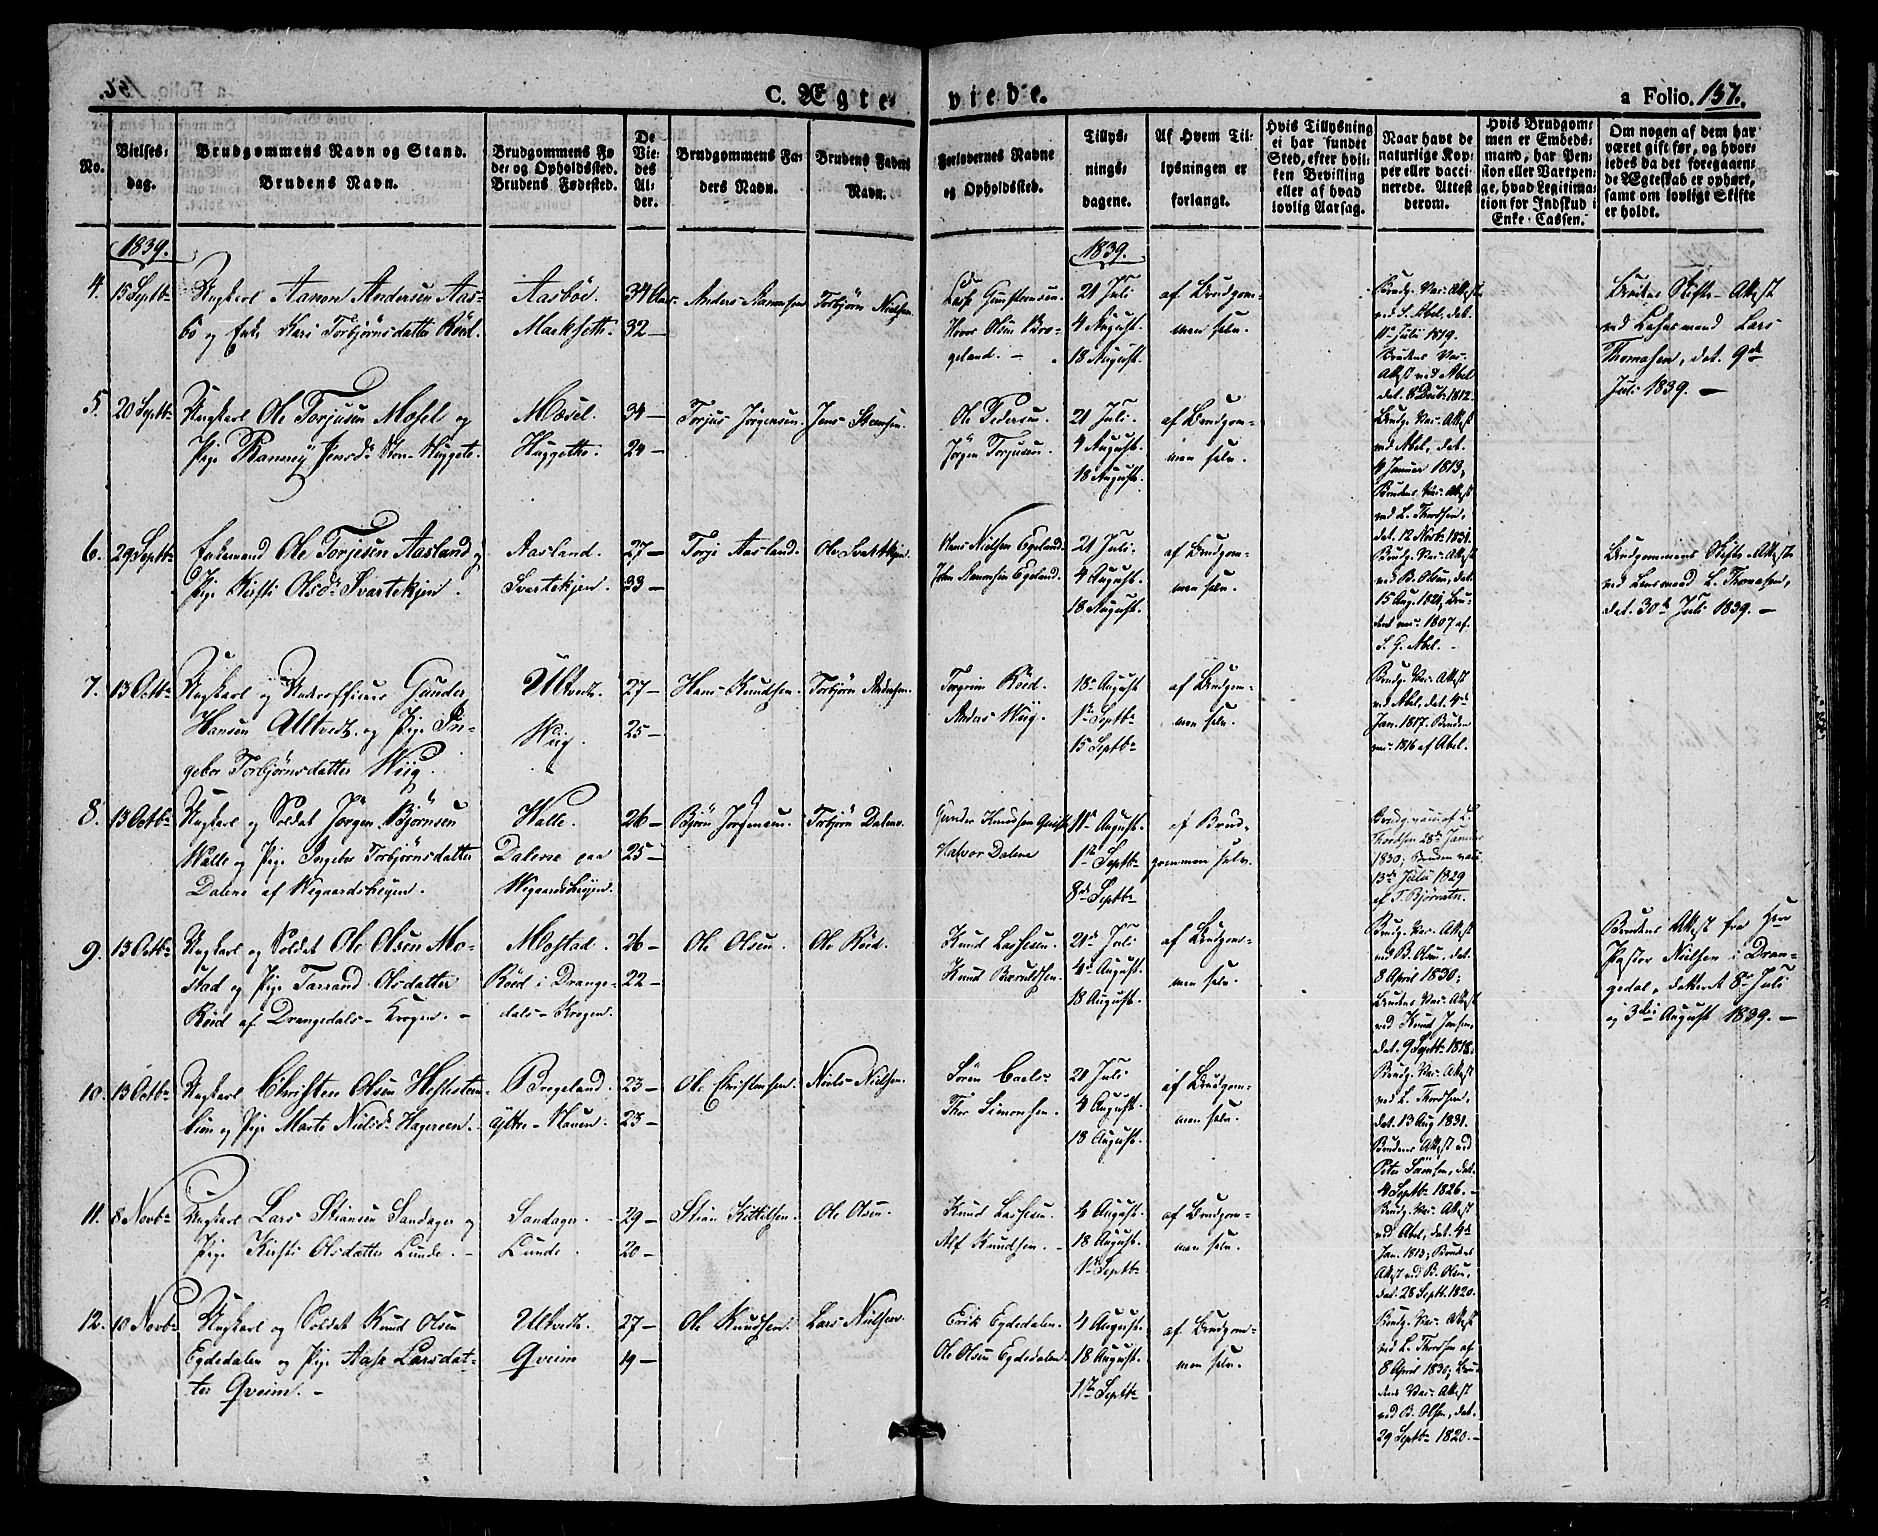 C. Ægteviede.
a Folio. 157.
No.
Vielses-dag.
Brudgommens Navn og Stand.
Brudens Navn.
Brudgommens Fø
de- og Opholdssted.
Brudens Fødested.
De Vie-des Al-der.
Brudgommens Fa-
ders Navn.
Brudens Faders
Navn.
Forlovernes Navne
og Opholdssted.
Tillys-
nings-
dagene.
Af Hvem Til-
lysningen er
forlangt.
Hvis Tillysning
ei har fundet
Sted, efter hvil-
ken Bevilling
eller af hvad
lovlig Aarsag.
Naar havt de
naturlige Kop-
per eller vacci-
nerede. Attest
derom.
Hvis Brudgom-
men er Embeds-
mand, har Pen-
sion eller Vartpen-
ge, hvad Legitima-
tion for Indskud i
Enke-Cassen.
Om nogen af dem har
været gift før, og hvor-
ledes da det foregaaen-
de Ægteskab er ophørt,
samt om lovligt Skifte
er holdt.
1839.
1839.
4. 15 Septbr Ungkarl Aanon Andersen Aas-
bö og Enke Kari Torbjørnsdatter Röed.
Aasböe.
34 Aar
32 —
Anders Aanonsen
Torbjørn Nielsen.
Gunstensen.
Olsen Bro-
geland. —
21 Juli
4 August.
18 August.
af Brudgom-
men selv.
Brudg. Vac. Attest
ved S. Abel, dat.
11te Julii 1819.
Brudens Vac.
Attest ved Abel
dat. 8 Decbr 1812.
Brudens Skifte-Attest
ved Lehnsmand Lars
Thomasen, dat. 9de
Juli 1839. —
5. 20 Septbr Ungkarl Ole Torjusen Mosel og
Pige Ranney Jensdr Huggeto.
Mosel.
Huggetho.
34 —
24 —
Torjus Jörgensen.
Ole Pedersen.
Jörgen Torjusen.
21 Juli.
4 August.
18 August.
af Brudgom-
men selv.
Brudg. Vac. Attest
ved Abel, dat.
4 Januar 1813;
Brudens Vac. Attest
ved L. Thordsen,
dat. 12 Novbr 1831.
6. 29 Septbr Enkemand Ole Torjesen Aasland og
Pige Kirsti Olsdr Svartekjen.
Aasland.
Svartekjen.
27 —
33 —
Torje Aasland.
Ole Svartekjen.
Hans Nielsen Egeland.
John Aanonsen Egeland.
21 Juli.
4 August.
18 August.
af Brudgom-
men selv.
Brudg. Vac. Attest
ved B. Olsen, dat.
15 Aug. 1821; Bru-
dens vac. 1807 af
S. G. Abel. —
Brudgommens Skifte-Attest
ved Lensmand L. Thomasen,
dat. 30te Juli 1839. —
7. 13 Octbr Ungkarl og Underofficeer Gunder
Hansen Ulltvedt. og Pige In-
gebor Torbjørnsdatter Wiig.
Ulltvedt.
Wiig.
27 —
25 —
Hans Knudsen.
Torbjørn
Torgrim Röed.
Anders Wiig.
18 August
1te Septbr
15 Septbr
af Brudgom-
men selv.
Brudg. Vac. Attest
ved Abel, dat. 4de
Jan. 1817. Bruden
vac. 1816 af Abel.
8. 13 Octbr Ungkarl og Soldat Jörgen Bjørnsen
Walle og Pige Ingebor Torbjørnsdatter
Dalene af Wegaardsheyen.
Walle.
Dalene paa
Wegaardsheyen.
26 —
25 —
Bjørn Jörgensen.
Torbjørn Dalene.
Gunder Knudsen
Halvor Dalene
11te August.
1te Septbr
8de Septbr
af Brud-
gommen selv.
Brudg. vacc. af L.
Thordsen 28de Januar
1830; Bruden vacc.
13de Julii 1829
af T. Bjørnetr.
9. 13 Octbr Ungkarl og Soldat Ole Olsen Mo-
stad og Pige Tarrand Olsdatter
Röed af Drangedals-Krogen. —
Mostad.
Röed i Drange-
dals-Krogen.
26 —
22 —
Ole Olsen.
Ole Röed.
Knud Larsen.
Knud
21de Juli
4de August.
18 August.
af Brudgom-
men selv.
Brudg. Vac. Attest
ved B. Olsen, dat.
8 April 1830;
Brudens Vac. Attest
ved Knud Jensen,
dat. 9 Septbr 1818.
Brudens Attest fra Hrr
Pastor Nielsen i Dran-
gedal, dateret 8de Juli
og 3die August 1839. —
10. 13 Octbr Ungkarl Christen Olsen
og Pige Marte Nielsdr Hagereen.
Brogeland.
23 —
23 —
Ole Christensen.
Niels Nielsen.
Sören Carls
Thor Simonsen.
21 Juli
4 August.
18 August.
af Brudgom-
men selv.
Brudg. Vac. Attest
ved L. Thordsen,
dat. 13 Aug 1831.
Brudens Attest ved
Peter dat.
4 Septbr 1826. —
11. 8 Novbr Ungkarl Lars Stiansen Sandager og
Pige Kirsti Olsdatter Lunde. —
Sandager.
Lunde.
29 —
20 —
Stian Kittilsen.
Ole Olsen.
Knud Larsen.
Alf Knudsen. —
4 August.
18 August.
1te Septbr
af Brudgom-
men selv.
Brudg. Vac. Attest
ved Abel, dat. 4de
Jan. 1813; Brudens
Attest ved B. Olsen,
dat. 28 Septr. 1820.
12. 10 Novbr Ungkarl og Soldat Knud Olsen
Egdedalen og Pige Aase Larsdat-
ter Qveim. —
Ulltvedt.
Qveim
27 —
19 —
Ole Knudsen.
Lars Nielsen.
Erik Egdedalen.
Ole Olsen Egdedalen.
4 August.
18 August.
1te Septbr
af Brudgom-
men selv.
Brudg. Vac. Attest
ved L. Thordsen af
8 April 1830; Bru-
dens Vac. Attest
ved B. Olsen, dat.
29 Septbr 1820. —